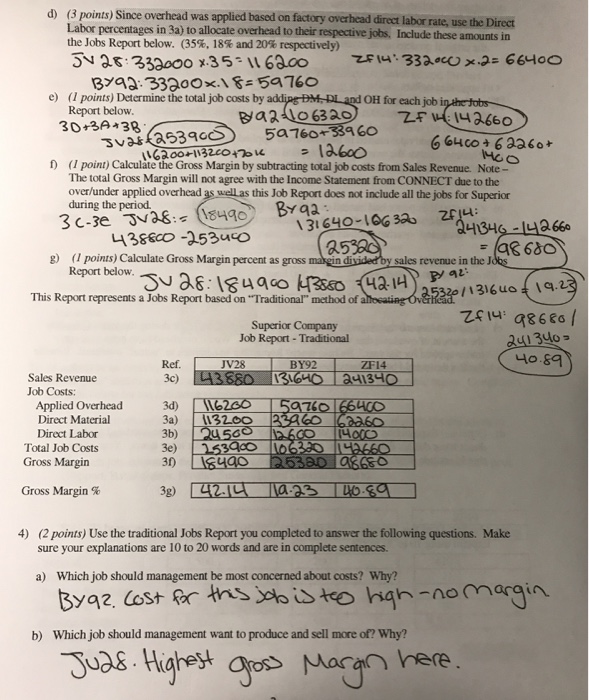 d) (3 points) Since overhead was applied based on factory overhead direct labor rate, use the Direct
Labor percentages in 3a) to allocate overhead to their respective jobs. Include these amounts in
the Jobs Report below. (35%, 18% and 20% respectively)
JV 28: 332000 x.35=116200 ZF14: 332000 x.2= 66400
BY92: 33200x.18=59760
e) (1 points) Determine the total job costs by adding DM, DL and OH for each job in the Jobs
Report below. BY92=106320 ZF14: 142660
3D+3A+3B 59760+33960
JV28=253900 66400+62260+
116200+113200+ = 12600
f) (1 point) Calculate the Gross Margin by subtracting total job costs from Sales Revenue. Note -
The total Gross Margin will not agree with the Income Statement from CONNECT due to the
over/under applied overhead as well as this Job Report does not include all the jobs for Superior
during the period. BY92: ZF14:
3C-3E JV28:= 18490 131640-106320 241340-142660
438800-253900 25320 = 98680
g) (1 points) Calculate Gross Margin percent as gross margin divided by sales revenue in the Jobs
Report below. JV 28: 184900/43880=42.14 BY 92: 25320/131640=19.23
This Report represents a Jobs Report based on "Traditional" method of allocating Overhead.
ZF14: 98680/
241340=
40.89
Superior Company
Job Report - Traditional
Ref. JV28 BY92 ZF14
Sales Revenue 3c) 43880 131640 241340
Job Costs:
Applied Overhead 3d) 116200 59760 66400
Direct Material 3a) 113200 33960 62260
Direct Labor 3b) 24500 12600 14000
Total Job Costs 3e) 253900 106320 142660
Gross Margin 3f) 18490 25320 98680
Gross Margin % 3g) 42.14 19.23 40.89
4) (2 points) Use the traditional Jobs Report you completed to answer the following questions. Make
sure your explanations are 10 to 20 words and are in complete sentences.
a) Which job should management be most concerned about costs? Why?
BY92. Cost for this job is too high - no margin
b) Which job should management want to produce and sell more of? Why?
JU28. Highest gross Margin here.